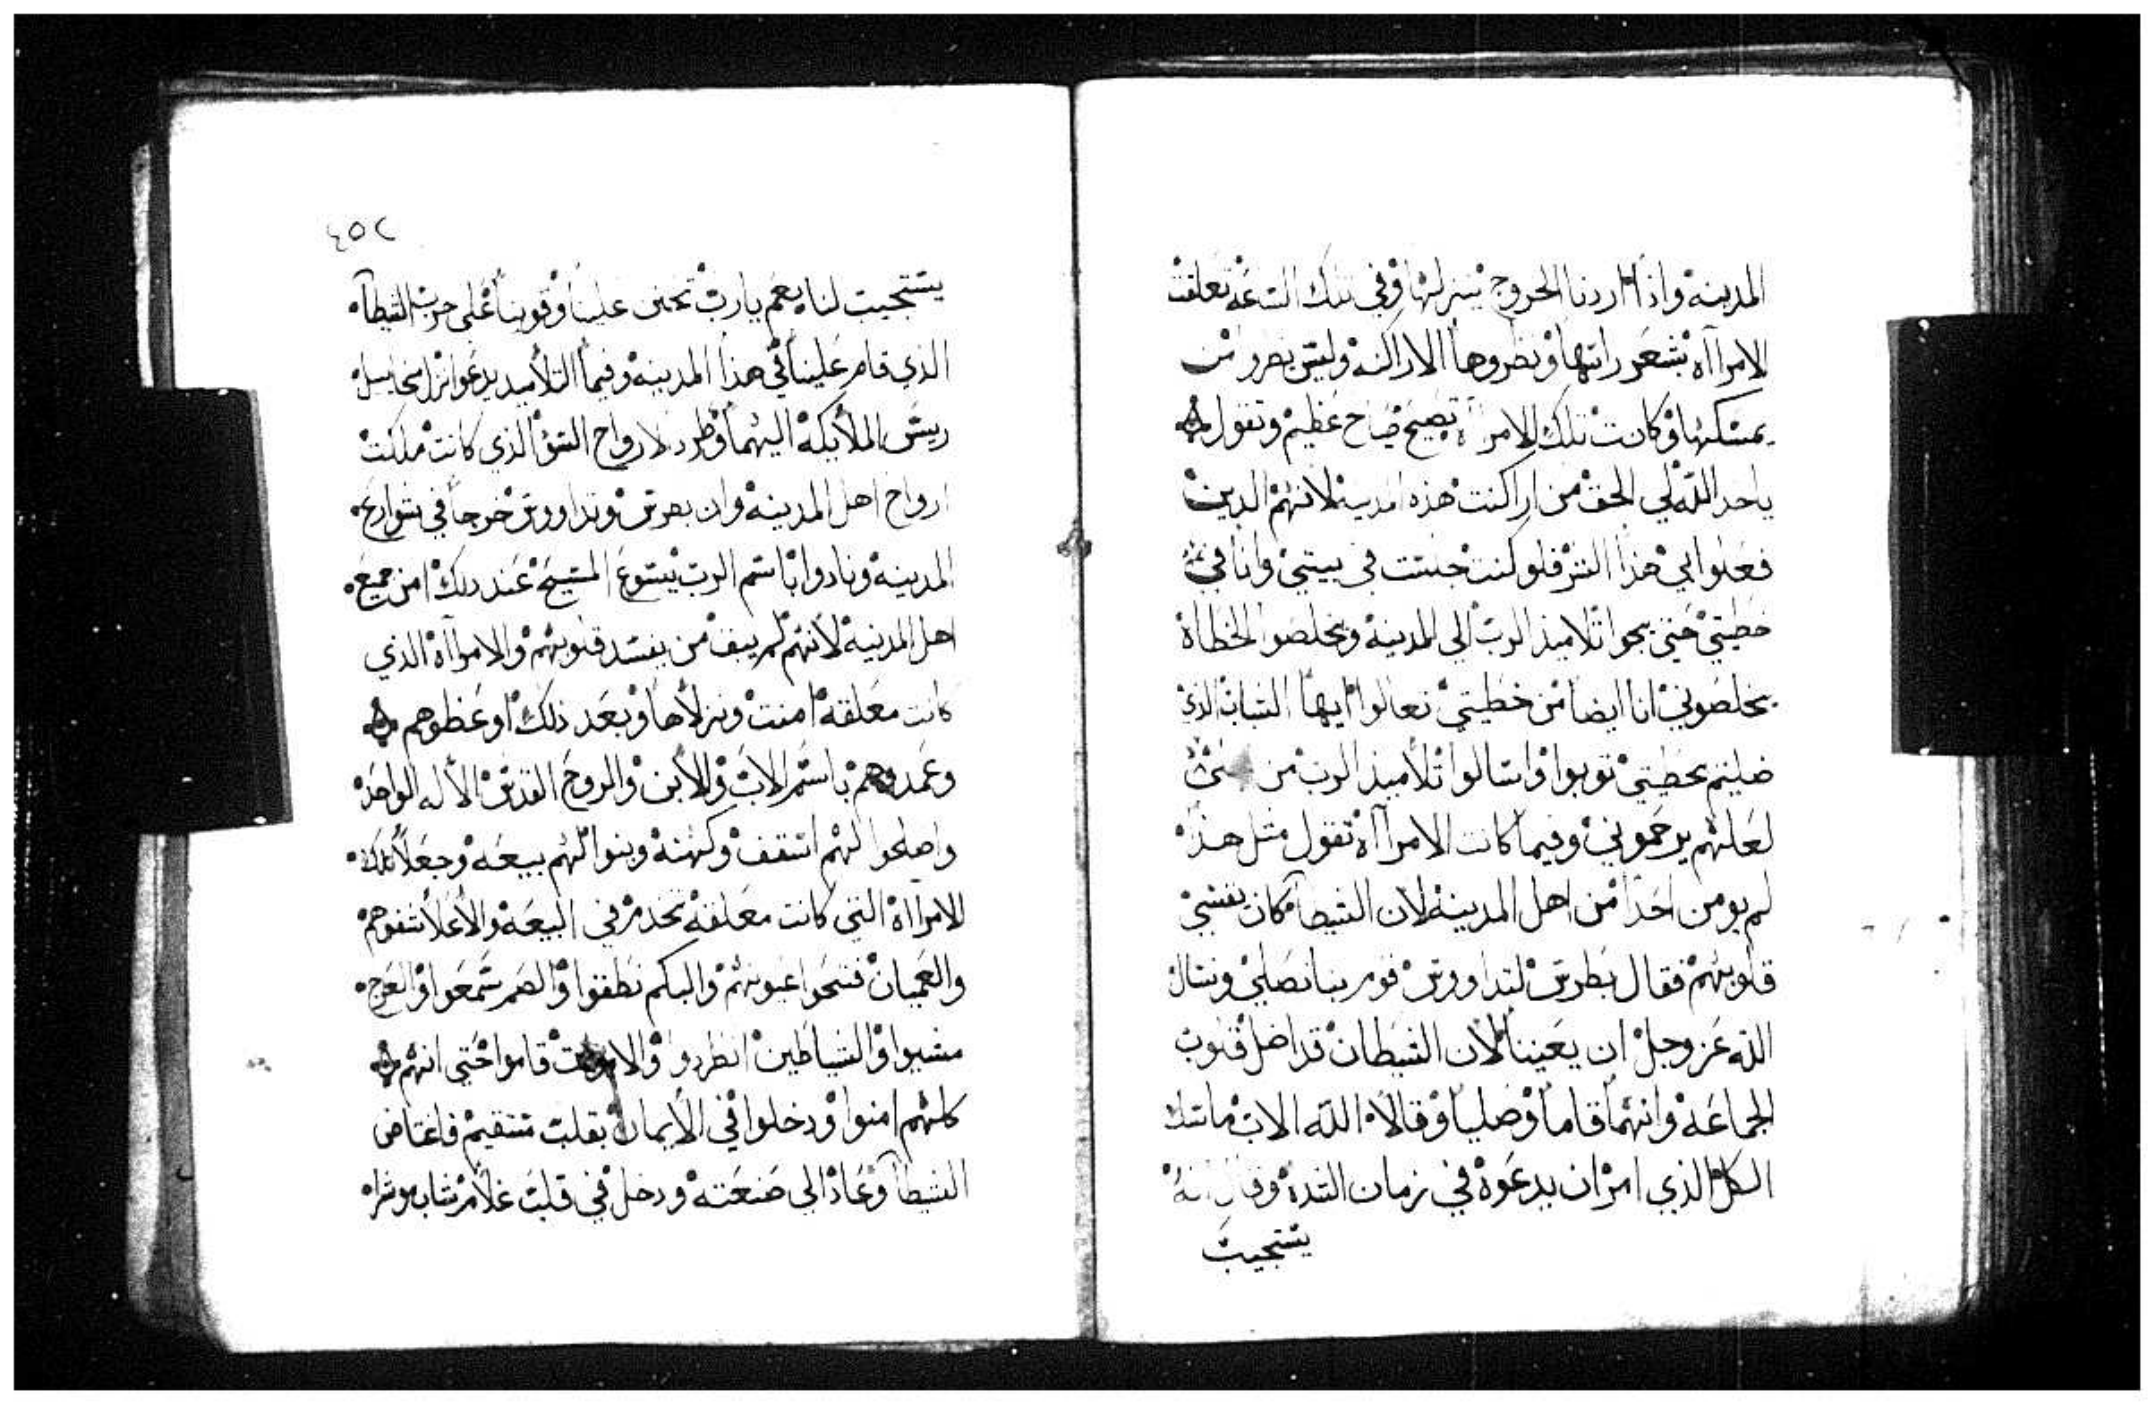 المدينه واذا اردنا الخروج ننزلها وفي تلك الساعه تعلقت
الامراه بشعر راسها ونظروها الاراكنه وليس بقدروا من
يمسكها وكانت تلك الامراه تصيح صياح عظيم وتقول
ياخد الله لي الحق من اراكنت هذه المدينه لانهم الدين
فعلوا بي هذا الشر فلو كنت جلست في بيتي وانا في
خطيتي حتي يجوا تلاميذ الرب الي المدينه ويخلصوا الخطاه
يخلصوني انا ايضا من خطيتي تعالوا ايها الشباب الذي
ضليتم بخطيتي توبوا واسالوا تلاميذ الرب من
لعلهم يرحموني وفيما كانت الامراه تقول مثل هذا
لم يومن احدا من اهل المدينه لان الشيطا كان يقسي
قلوبهم فقال بطرس لتداووس قوم بنا نصلي ونسال
الله عز وجل ان يعيننا لان الشيطان قد اضل قلوب
الجماعه وانهما قاما وصليا وقالا الله الاب ماسك
الكل الذي امر ان يدعوه في زمان الشده وقال انه
يستجيب
٤٥٢
يستجيب لنا نعم يارب تحنن علينا وقوينا علي حرب الشيطا
الذي قام علينا في هذا المدينه وفيما التلاميد يدعوا نزل ميخاييل
ريس الملايكه اليهما وطرد لارواح السو الذي كانت ملكت
ارواح اهل المدينه وان بطرس وتداووس خرجا في شوارع
المدينه ونادوا باسم الرب يسوع المسيح عند دلك امن جميع
اهل المدينه لانهم لم يبق من يفسد قلوبهم والامراه الذي
كانت معلقه امنت ونزلاها وبعد ذلك اوعظوهم
وعمدوهم باسم الاب والابن والروح القدس الاله الواحد
واصلحوا لهم اسقف وكهنه وبنوا لهم بيعه وجعلا تلك
الامراه التي كانت معلقه تخدم في البيعه والاعلا شفوهم
والعميان فتحوا عيونهم والبكم نطقوا والصم سمعوا والعرج
مشيوا والشياطين انطردوا والاموات قاموا حتي انهم
كلهم امنوا ودخلوا في الايمان بقلب مستقيم فاغتاض
الشيطا وعاد الي صنعته ودخل في قلب غلام شاب